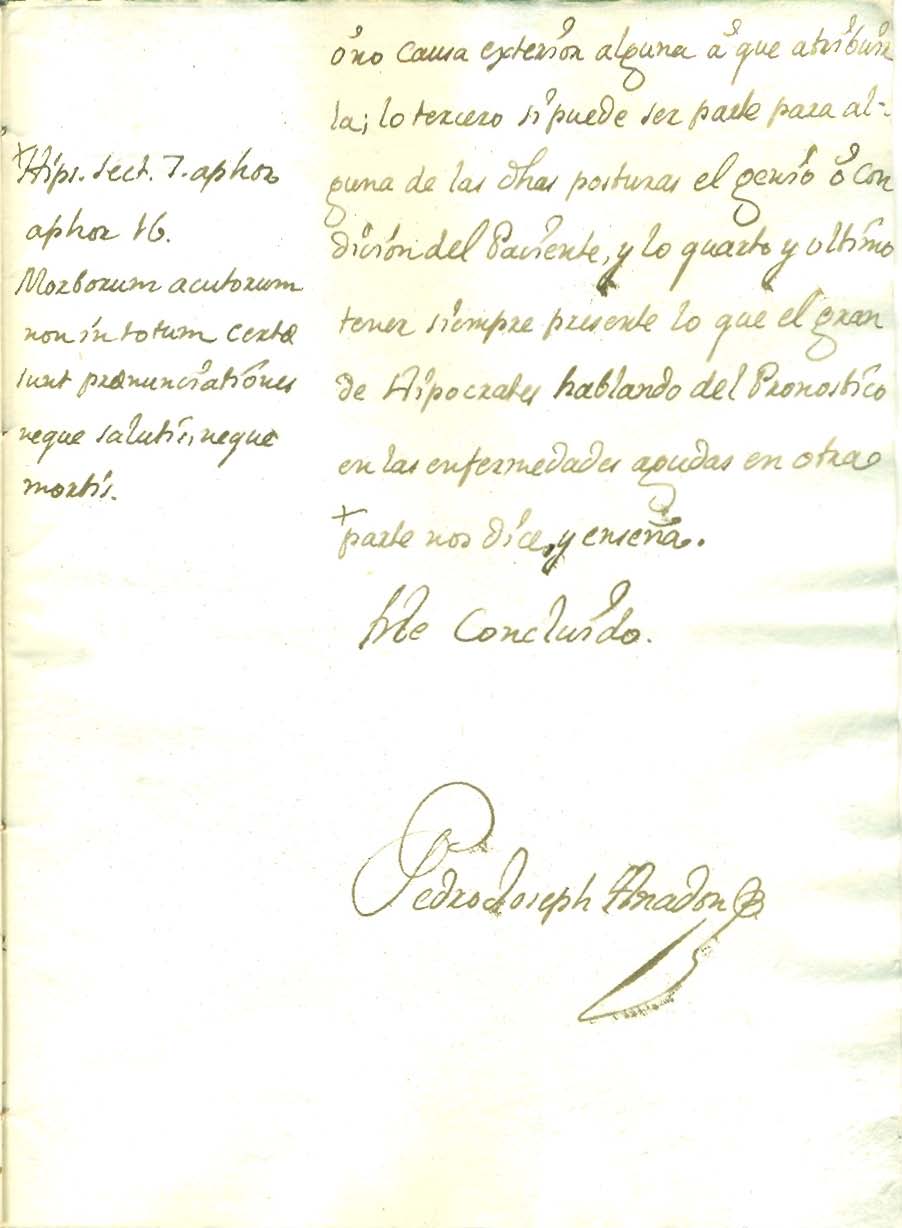 óno causa exterior alguna á que atribuir
la; lo tercero si puede ser parte para al-
guna de las dhas posturas el genio ó con
dicion del Paciente, y lo quarto y ultimo
tener siempre presente lo que el gran
de Hipocrates hablando del Pronostico
en las enfermedades agudas en otra
+
parte nos dice, y enseña.
He Concluido.
+
Hips. sect. 7. aphor
aphor 16.
Morborum acutorum
non in totum certæ
sunt prænunciationes
neque salutis, neque
mortis.
Pedro Joseph Amadon